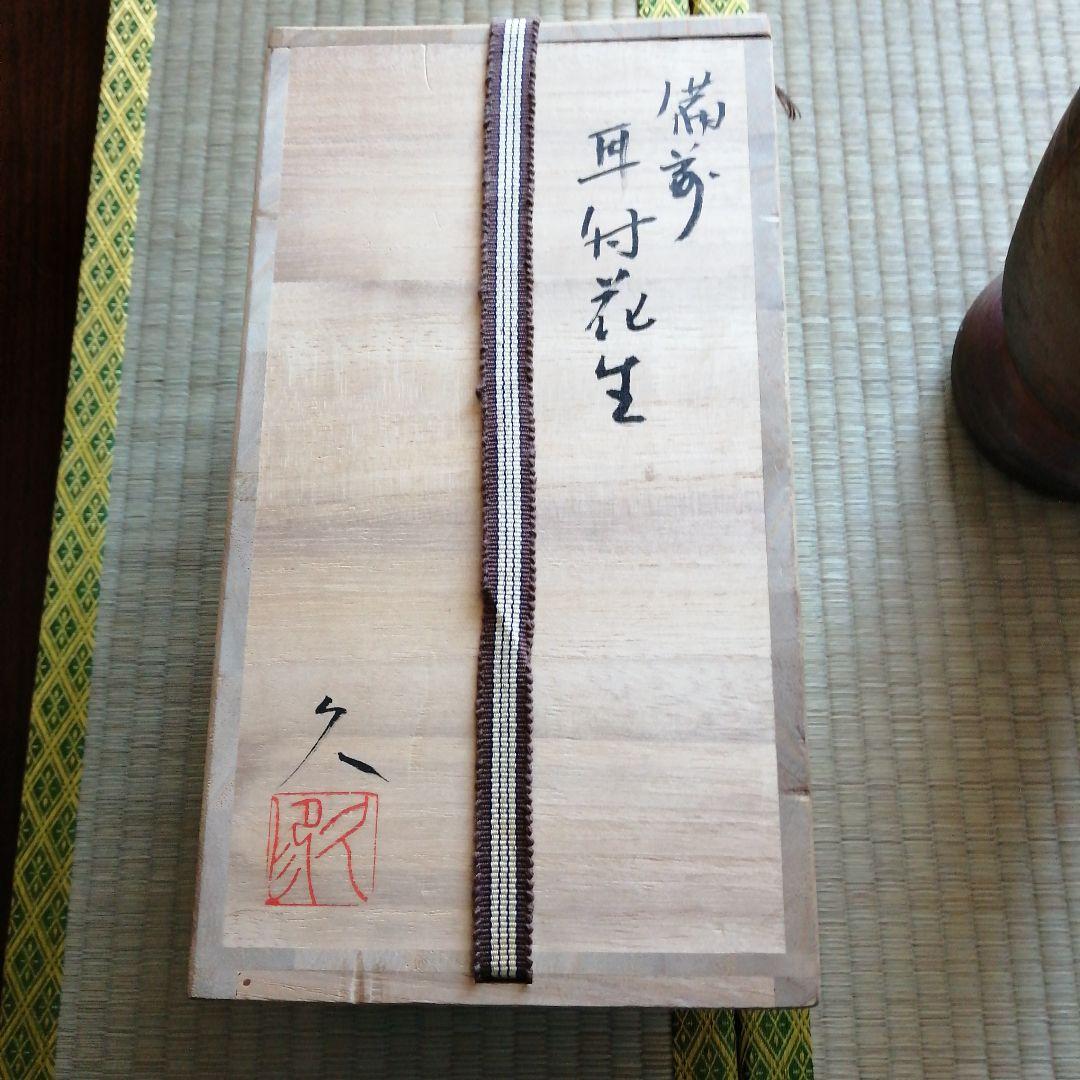 備前
耳付花生
久